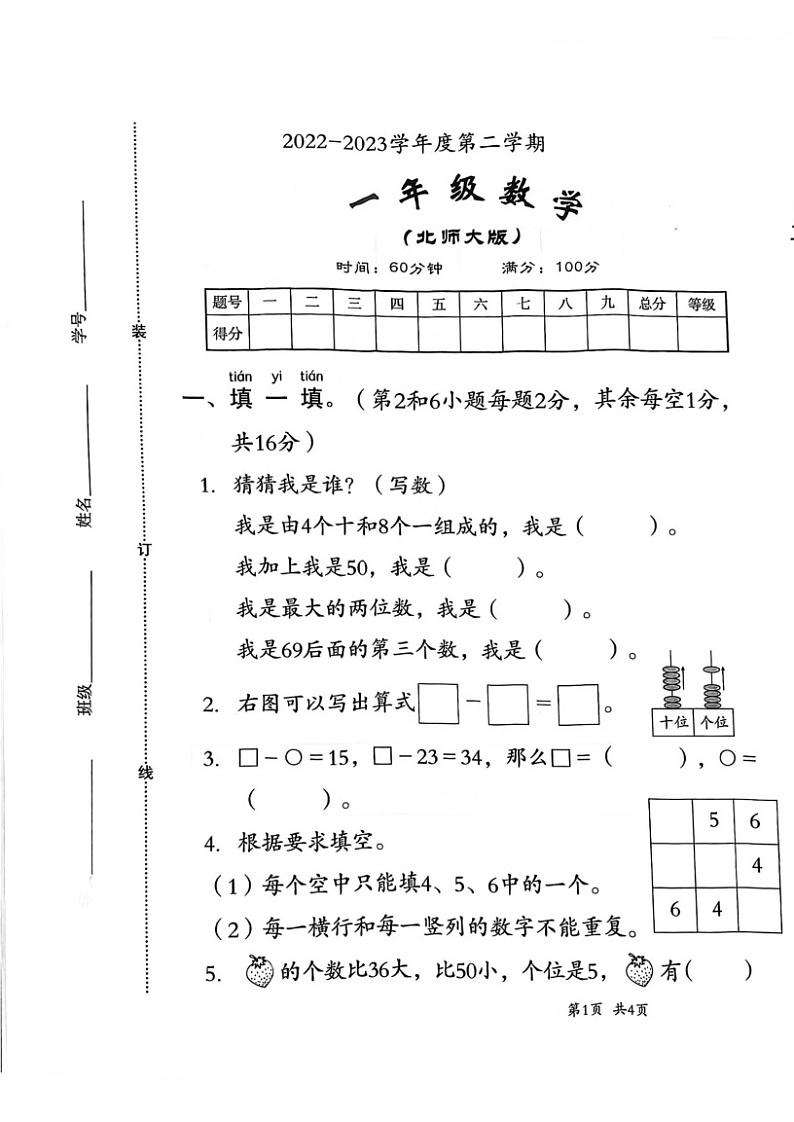 2022-2023学年度第二学期
一年级数学
(北师大版)
时间：60分钟 满分：100分
题号 一 二 三 四 五 六 七 八 九 总分 等级
得分
tián yi tián
一、填一填。（第2和6小题每题2分，其余每空1分，
共16分）
1. 猜猜我是谁？（写数）
我是由4个十和8个一组成的，我是（ ）。
我加上我是50，我是（ ）。
我是最大的两位数，我是（ ）。
我是69后面的第三个数，我是（ ）。
2. 右图可以写出算式□-□=□。
十位 个位
3. □-○=15，□-23=34，那么□=（ ），○=
（ ）。
4. 根据要求填空。
（1）每个空中只能填4、5、6中的一个。
（2）每一横行和每一竖列的数字不能重复。
5 6
4
6 4
5. 的个数比36大，比50小，个位是5， 有( )
第1页 共4页
学号
姓名
班级
装
订
线